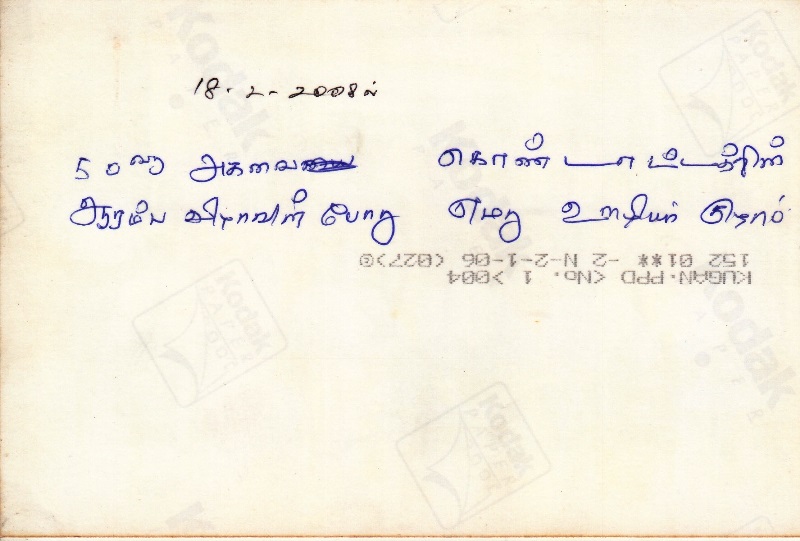 18-2-2008ல்
50வது அகவை கொண்டாட்டத்தின்
ஆரம்ப விழாவின் போது எமது ஊழியர் குழாம்
152 01** -2 N-2-1-06 (027)©
KUGAN.PPD <No. 1 >004
Kodak
PAPER
Kodak
PAPER
Kodak
PAPER
Kodak
Kodak